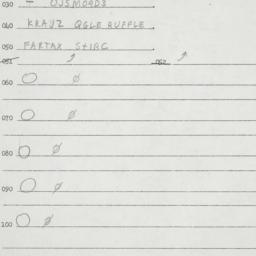 030
040 KRAUZ QGLE RUFFLE
050 FARTAX STIRG
051 052
060 O ∅
070 O ∅
080 O ∅
090 O ∅
100 O ∅